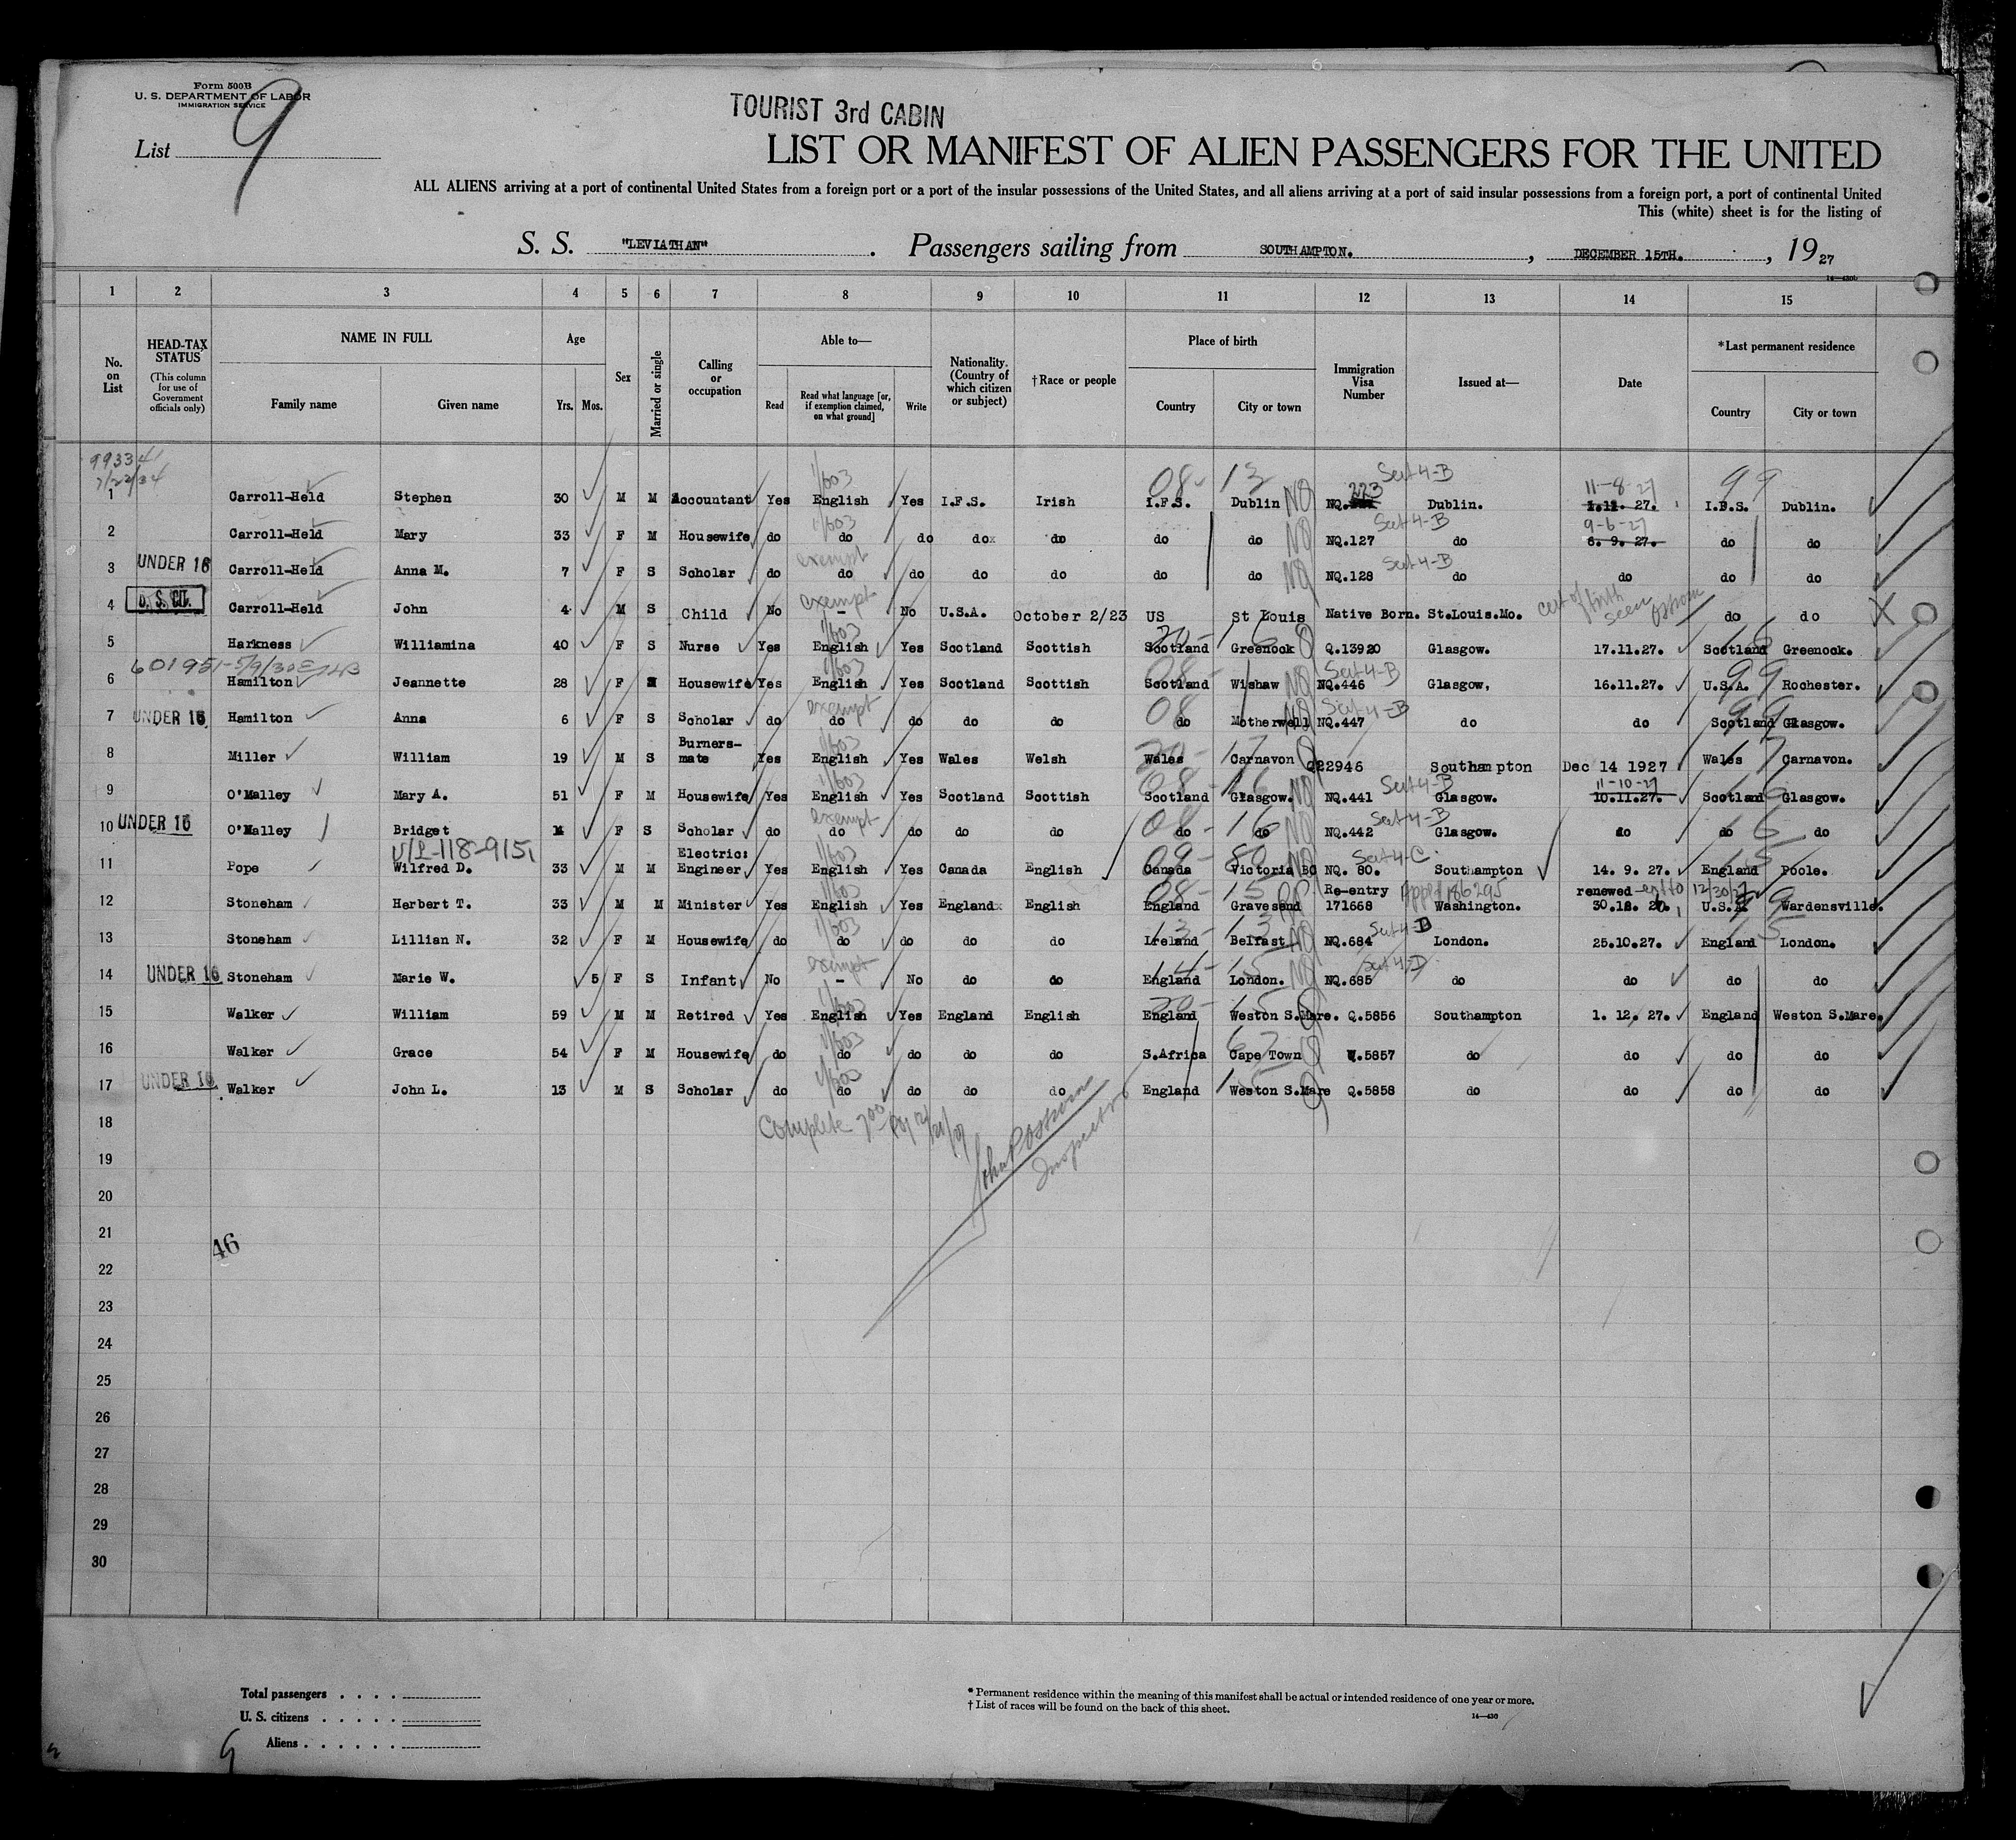 Form 500B
U. S. DEPARTMENT OF LABOR
IMMIGRATION SERVICE
List 9
TOURIST 3rd CABIN
LIST OR MANIFEST OF ALIEN PASSENGERS FOR THE UNITED
ALL ALIENS arriving at a port of continental United States from a foreign port or a port of the insular possessions of the United States, and all aliens arriving at a port of said insular possessions from a foreign port, a port of continental United
This (white) sheet is for the listing of
S. S. "LEVIATHAN". Passengers sailing from SOUTHAMPTON. , DECEMBER 15TH. , 1927
1 2 3 4 5 6 7 8 9 10 11 12 13 14 15
No. on List
HEAD-TAX STATUS
(This column for use of Government officials only)
NAME IN FULL
Family name Given name
Age
Yrs. Mos.
Sex
Married or single
Calling or occupation
Able to—
Read Read what language [or, if exemption claimed, on what ground] Write
Nationality. (Country of which citizen or subject)
†Race or people
Place of birth
Country City or town
Immigration Visa Number
Issued at—
Date
*Last permanent residence
Country City or town
99334
7/22/34
1/603 08- 13 Sect 4-B 223 11-8-27 99
1 Carroll-Held Stephen 30 M M Accountant Yes English Yes I.F.S. Irish I.F.S. Dublin NQ. Dublin. 1.11. 27. I.F.S. Dublin.
1/603 Sect 4-B 9-6-27
2 Carroll-Held Mary 33 F M Housewife do do do do do do do NQ.127 do 6. 9. 27. do do
UNDER 16 exempt Sect 4-B
3 Carroll-Held Anna M. 7 F S Scholar do do do do do do do NQ.128 do do do do
U. S. CIT. exempt cert of birth seen Ostrom
4 Carroll-Held John 4 M S Child No - No U.S.A. October 2/23 US St Louis Native Born. St.Louis.Mo. do do X
1/603 20- 16 16
5 Harkness Williamina 40 F S Nurse Yes English Yes Scotland Scottish Scotland Greenock Q.13920 Glasgow. 17.11.27. Scotland Greenock.
601951-5/9/30 1/603 08- Sect 4-B 99
6 Hamilton Jeannette 28 F M Housewife Yes English Yes Scotland Scottish Scotland Wishaw NQ.446 Glasgow, 16.11.27. U.S.A. Rochester.
UNDER 16 exempt 08 Sect 4-B
7 Hamilton Anna 6 F S Scholar do do do do do do Motherwell NQ.447 do do Scotland Glasgow.
1/603 20- 17 17
8 Miller William 19 M S Burners-mate Yes English Yes Wales Welsh Wales Carnavon Q22946 Southampton Dec 14 1927 Wales Carnavon.
1/603 08- 16 Sect 4-B 11-10-27 16
9 O'Malley Mary A. 51 F M Housewife Yes English Yes Scotland Scottish Scotland Glasgow. NQ.441 Glasgow. 10.11.27. Scotland Glasgow.
UNDER 16 exempt 08 - 16 Sect 4-B 16
10 O'Malley Bridget F S Scholar do do do do do do do NQ.442 Glasgow. do do do
V/L-118-915,
1/603 09- 80 Sect 4-C 15
11 Pope Wilfred D. 33 M M Electric: Engineer Yes English Yes Canada English Canada Victoria BC NQ. 80. Southampton 14. 9. 27. England Poole.
1/603 08- 15 Re-entry 186295 renewed 12/30/27 99
12 Stoneham Herbert T. 33 M M Minister Yes English Yes England English England Gravesend 171668 Washington. U.S.A. Wardensville.
1/603 13- 13 Sect 4-D 15
13 Stoneham Lillian N. 32 F M Housewife do do do do do Ireland Belfast NQ.684 London. 25.10.27. England London.
UNDER 16 exempt 14- 15 Sect 4-D
14 Stoneham Marie W. 5 F S Infant No - No do do England London. NQ.685 do do do do
1/603 20- 15
15 Walker William 59 M M Retired Yes English Yes England English England Weston S.Mare. Q.5856 Southampton 1. 12. 27. England Weston S.Mare.
1/603 67
16 Walker Grace 54 F M Housewife do do do do do S.Africa Cape Town .5857 do do do do
UNDER 16 1/603 15
17 Walker John L. 13 M S Scholar do do do do do England Weston S.Mare Q.5858 do do do do
18 Complete
19 John P Ostrom
20 Inspector
21
46
22
23
24
25
26
27
28
29
30
Total passengers
U. S. citizens
Aliens
9
* Permanent residence within the meaning of this manifest shall be actual or intended residence of one year or more.
† List of races will be found on the back of this sheet.
14—430